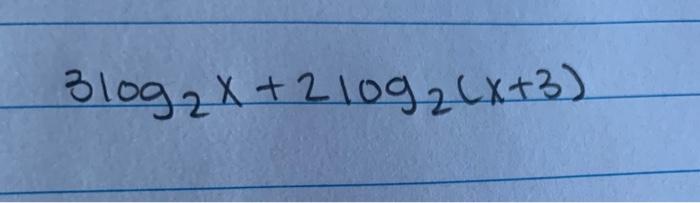 3log₂x+2log₂(x+3)